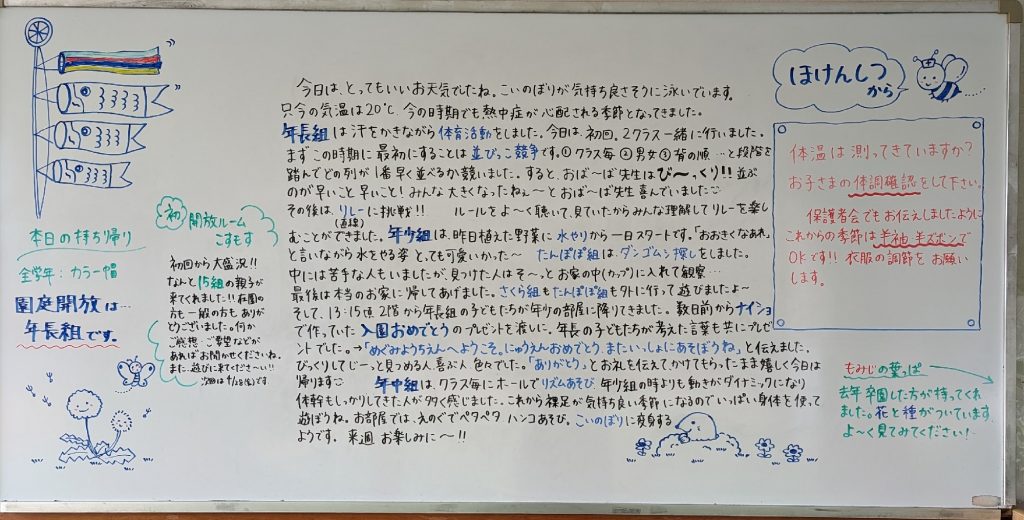 本日の持ち帰り
全学年：カラー帽
園庭開放は…
年長組です。
初 開放ルーム
こすもす
初回から大盛況!!
なんと15組の親子が
来てくれました!!在園の
方も一般の方もありが
とうございました。何か
ご感想・ご要望などが
あればお聞かせくださいね。
また、遊びに来てくださ〜い!!
今日は、とってもいいお天気でしたね。こいのぼりが気持ち良さそうに泳いでいます。
只今の気温は20℃、今の時期でも熱中症が心配される季節となってきました。
年長組は汗をかきながら体育活動をしました。今日は、初回、2クラス一緒に行いました。
まずこの時期に最初にすることは並びっこ競争です。①クラス毎②男女③背の順…と段階を
踏んでどの列が1番早く並べるか競いました。すると、おば〜ば先生はび〜っくり!!並ぶ
のが早いこと早いこと!みんな大きくなったねぇ〜とおば〜ば先生喜んでいました
その後は、リレーに挑戦!! ルールをよ〜く聴いて、見ていたからみんな理解してリレーを楽し
(直線)
むことができました。年少組は、昨日植えた野菜に水やりから一日スタートです。「おおきくなあれ」
と言いながら水をやる姿とっても可愛いかった〜 たんぽぽ組は、ダンゴムシ探しをしました。
中には苦手な人もいましたが、見つけた人はそ〜っとお家の中(カップ)に入れて観察…
最後は本当のお家に帰してあげました。さくら組もたんぽぽ組も外に行って遊びましたよ〜
そして、13:15頃2階から年長組の子どもたちが年少の部屋に降りてきました。数日前からナイショ
で作っていた入園おめでとうのプレゼントを渡しに。年長の子どもたちが考えた言葉も共にプレゼ
ントでした。→「めぐみようちえんへようこそ。にゅうえんおめでとう。またいっしょにあそぼうね」と伝えました。
びっくりしてじーっと見つめる人、喜ぶ人、色々でした。「ありがとう」とお礼も伝えて、かけてもらったまま嬉しく今日は
帰ります 年中組は、クラス毎にホールでリズムあそび。年少組の時よりも動きがダイナミックになり
体幹もしっかりしてきた人が多く感じました。これから裸足が気持ち良い季節になるのでいっぱい身体を使って
遊ぼうね。お部屋では、えのぐでペタペタ ハンコあそび。こいのぼりに変身する
ようです。来週お楽しみに〜!!
ほけんしつ
から
体温は測ってきていますか?
お子さまの体調確認をして下さい。
保護者会でもお伝えしましたように
これからの季節は半袖、半ズボンで
OKです!!衣服の調節をお願い
します。
もみじの葉っぱ
去年卒園した方が持ってくれ
ました。花と種がついています
よ〜く見てみてください!